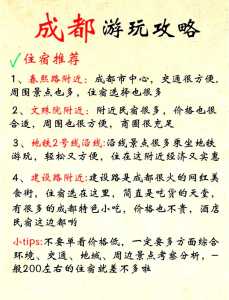 成都游玩攻略
✓住宿推荐
1、春熙路附近：成都市中心，交通很方便，
周围景点也多，住宿选择也很多
2、文殊院附近：附近民宿很多，价格也很
合适，周围也很方便，商圈很充足
3、地铁2号线沿线:沿线景点很多乘坐地铁
游玩，轻松又方便，住在这附近经济又实惠
4、建设路附近:建设路是成都很火的网红美
食街，住宿选在这里，简直是吃货的天堂，
有很多的成都特色小吃，价格也不贵，酒店
民宿这边都哟
小tips:不要单看价格低，一定要多方面综合
环境、交通、地域、周边景点考察分析，一
般200左右的住宿就差不多啦